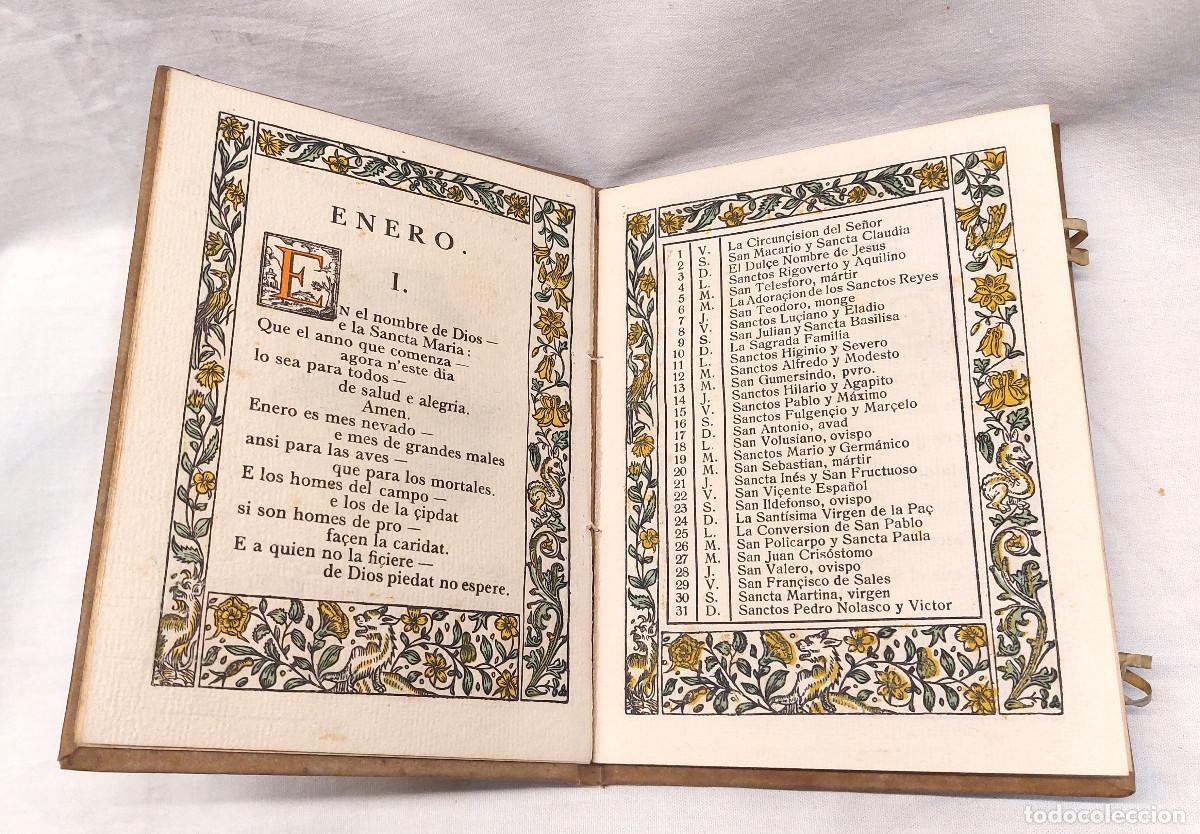 ENERO.
I.
EN el nombre de Dios —
e la Sancta Maria:
Que el anno que comenza —
agora n'este dia
lo sea para todos —
de salud e alegria.
Amen.
Enero es mes nevado —
e mes de grandes males
ansi para las aves —
que para los mortales.
E los homes del campo —
e los de la çipdat
si son homes de pro —
façen la caridat.
E a quien no la fiçiere —
de Dios piedat no espere.
1 V. La Circunçision del Señor
2 S. San Macario y Sancta Claudia
3 D. El Dulçe Nombre de Jesus
4 L. Sanctos Rigoverto y Aquilino
5 M. San Telesforo, mártir
6 M. La Adoraçion de los Sanctos Reyes
7 J. San Teodoro, monge
8 V. Sanctos Luçiano y Eladio
9 S. San Julian y Sancta Basilisa
10 D. La Sagrada Familia
11 L. Sanctos Higinio y Severo
12 M. Sanctos Alfredo y Modesto
13 M. San Gumersindo, pvro.
14 J. Sanctos Hilario y Agapito
15 V. Sanctos Pablo y Máximo
16 S. Sanctos Fulgençio y Marçelo
17 D. San Antonio, avad
18 L. San Volusiano, ovispo
19 M. Sanctos Mario y Germánico
20 M. San Sebastian, mártir
21 J. Sancta Inés y San Fructuoso
22 V. San Viçente Español
23 S. San Ildefonso, ovispo
24 D. La Santísima Virgen de la Paç
25 L. La Conversion de San Pablo
26 M. San Policarpo y Sancta Paula
27 M. San Juan Crisóstomo
28 J. San Valero, ovispo
29 V. San Françisco de Sales
30 S. Sancta Martina, virgen
31 D. Sanctos Pedro Nolasco y Victor
todocoleccion